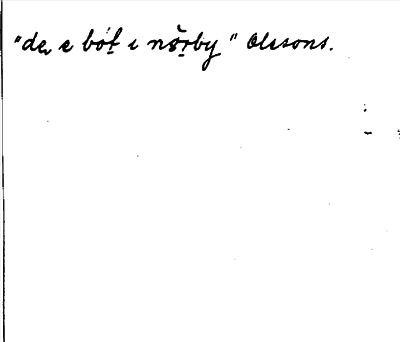 "de e bót i nǒrby" Olssons.